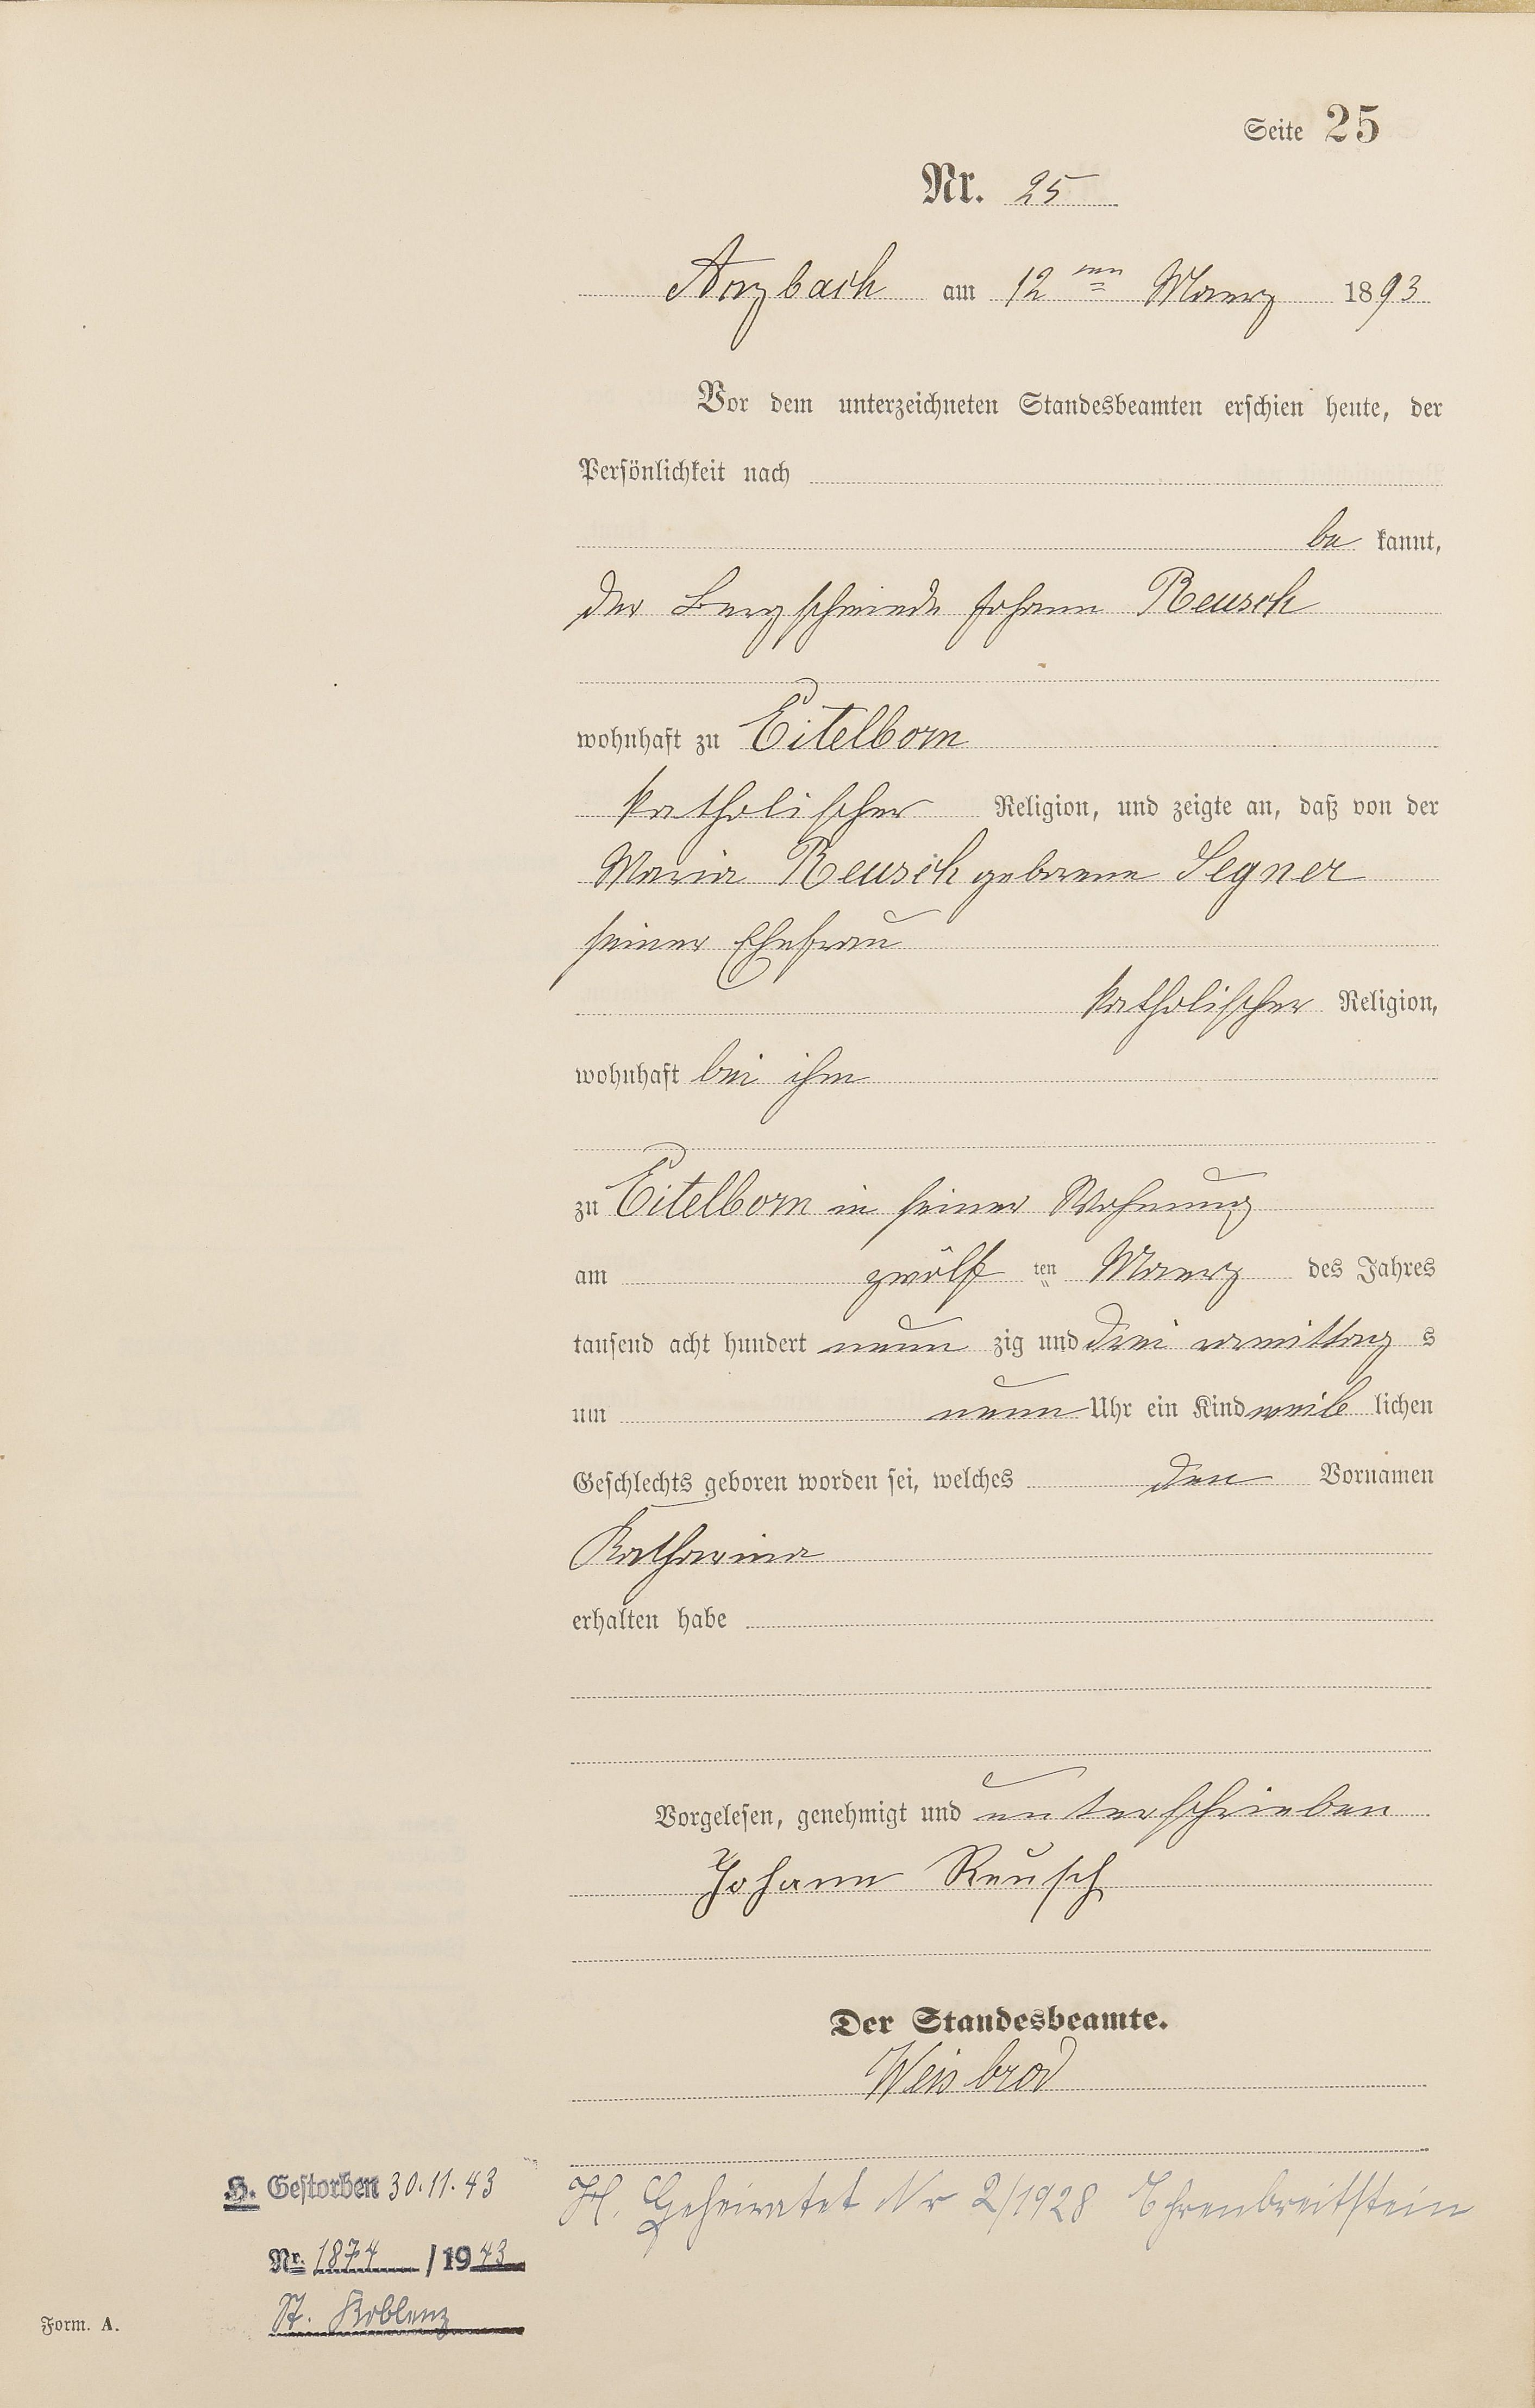 Seite 25
Nr. 25
Arzbach am 12ten Maerz 1893
Vor dem unterzeichneten Standesbeamten erschien heute, der
Persönlichkeit nach
be kannt,
der Bergschmied Johann Reusch
wohnhaft zu Eitelborn
katholischer Religion, und zeigte an, daß von der
Maria Reusch geborene Segner
seiner Ehefrau
katholischer Religion,
wohnhaft bei ihm
zu Eitelborn in seiner Wohnung
am zwölf ten Maerz des Jahres
tausend acht hundert neun zig und drei vormittag s
um neun Uhr ein Kind weib lichen
Geschlechts geboren worden sei, welches den Vornamen
Katharina
erhalten habe
Vorgelesen, genehmigt und unterschrieben
Johann Reusch
Der Standesbeamte.
Weisbrod
H. Geheiratet Nr 2/1928 Ehrenbreitstein
H. Gestorben 30.11.43
Nr. 1874 /1943
St. Koblenz
Form. A.